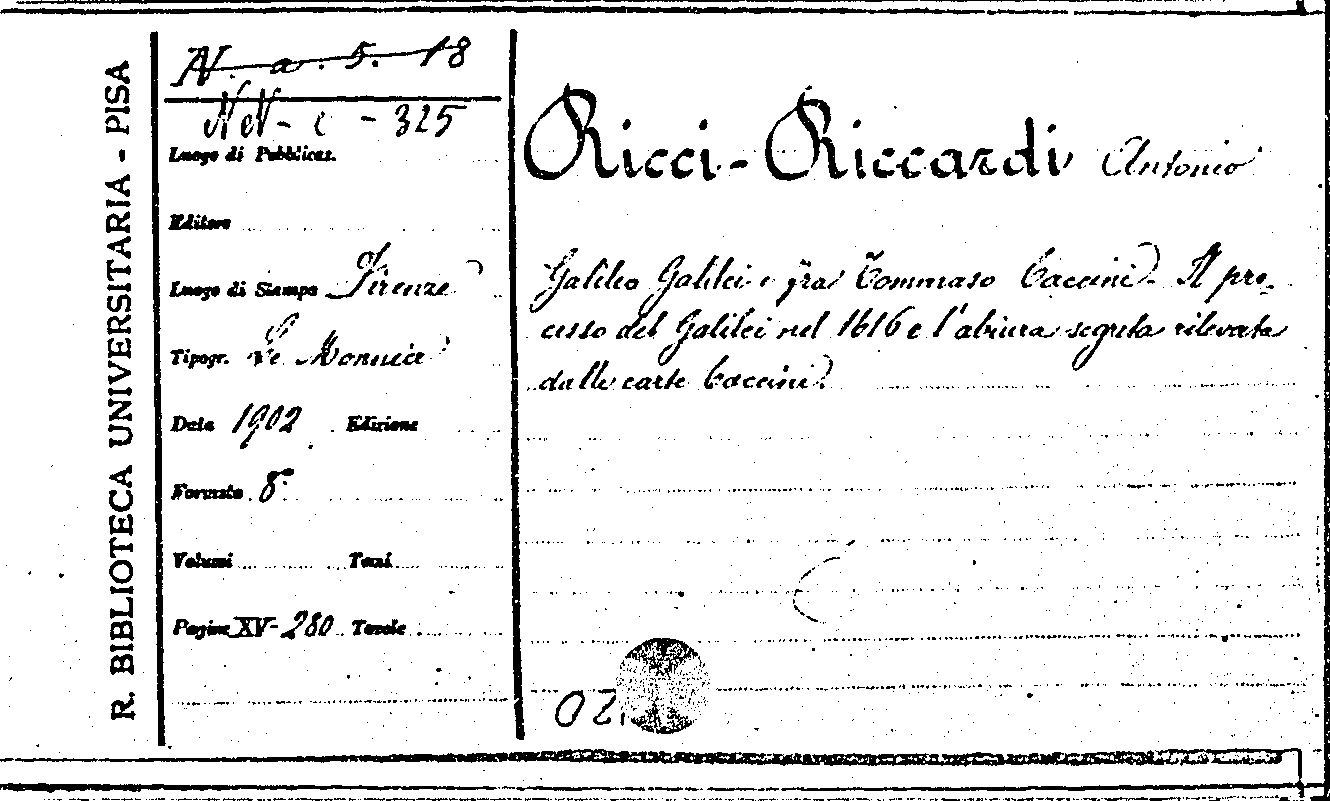 R. BIBLIOTECA UNIVERSITARIA - PISA
N. a. 5. 18
325
Luogo di Pubblicaz.
Editore
Luogo di Stampa Firenze
Tipogr. Le Monnier
Data 1902 Edizione
Formato 8°
Volumi Tomi
Pagine XV-280 Tavole
Ricci-Riccardi Antonio
Galileo Galilei e fra Tommaso Caccini. Il pro-
cesso del Galilei nel 1616 e l'abiura segreta rilevata
dalle carte Caccini.